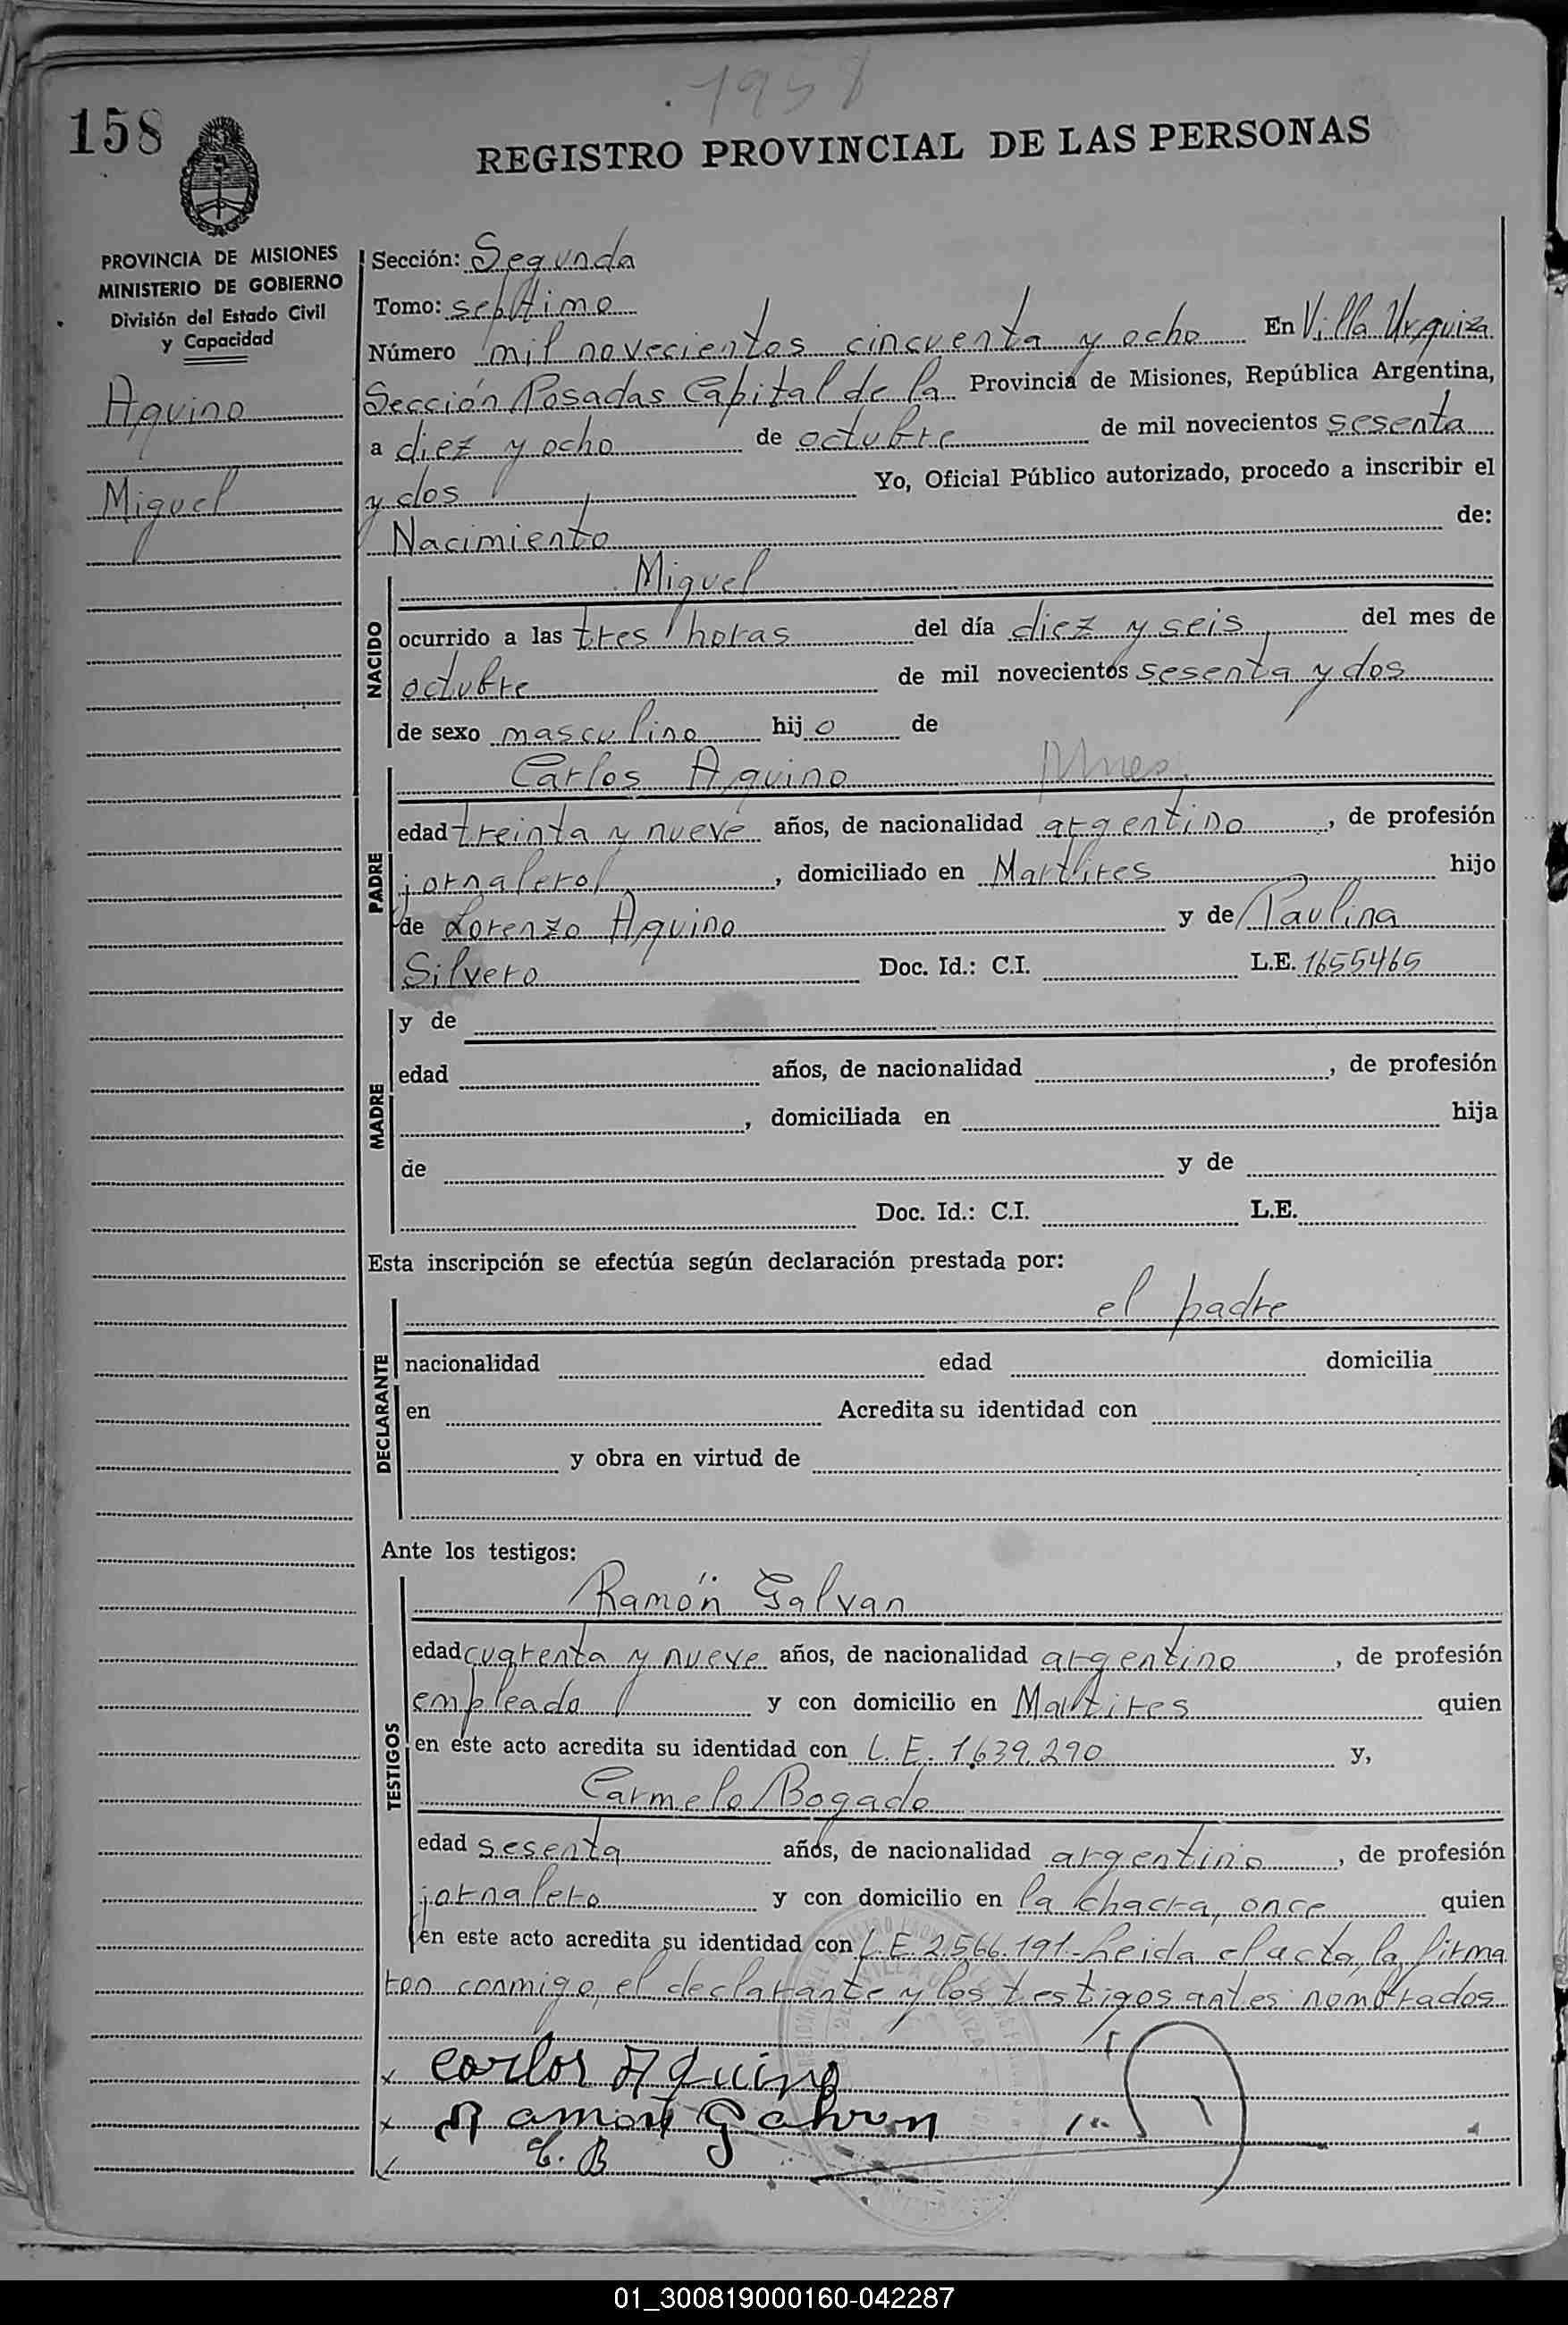 1958
158
REGISTRO PROVINCIAL DE LAS PERSONAS
PROVINCIA DE MISIONES
MINISTERIO DE GOBIERNO
División del Estado Civil
y Capacidad
Aquino
Miguel
Sección: Segunda
Tomo: septimo
Número mil novecientos cincuenta y ocho En Villa Urquiza
Sección Posadas Capital de la Provincia de Misiones, República Argentina,
a diez y ocho de octubre de mil novecientos sesenta
y dos Yo, Oficial Público autorizado, procedo a inscribir el
Nacimiento de:
NACIDO
Miguel
ocurrido a las tres horas del día diez y seis del mes de
octubre de mil novecientos sesenta y dos
de sexo masculino hijo de
PADRE
Carlos Aquino
edad treinta y nueve años, de nacionalidad argentino, de profesión
jornalero, domiciliado en Martires hijo
de Lorenzo Aquino y de Paulina
Silvero Doc. Id.: C.I. L.E. 1655465
MADRE
y de
edad años, de nacionalidad , de profesión
, domiciliada en hija
de y de
Doc. Id.: C.I. L.E.
Esta inscripción se efectúa según declaración prestada por:
DECLARANTE
el padre
nacionalidad edad domicilia
en Acredita su identidad con
y obra en virtud de
Ante los testigos:
TESTIGOS
Ramón Galvan
edad cuarenta y nueve años, de nacionalidad argentino, de profesión
empleado y con domicilio en Martires quien
en este acto acredita su identidad con L.E. 1.639.290 y,
Carmelo Bogado
edad sesenta años, de nacionalidad argentino, de profesión
jornalero y con domicilio en la chacra, once quien
en este acto acredita su identidad con L.E. 2.566.191.- Leida el acta, la firma
ron conmigo, el declarante y los testigos antes nombrados
x Carlos Aquino
x Ramon Galvan
C. B
01_300819000160-042287